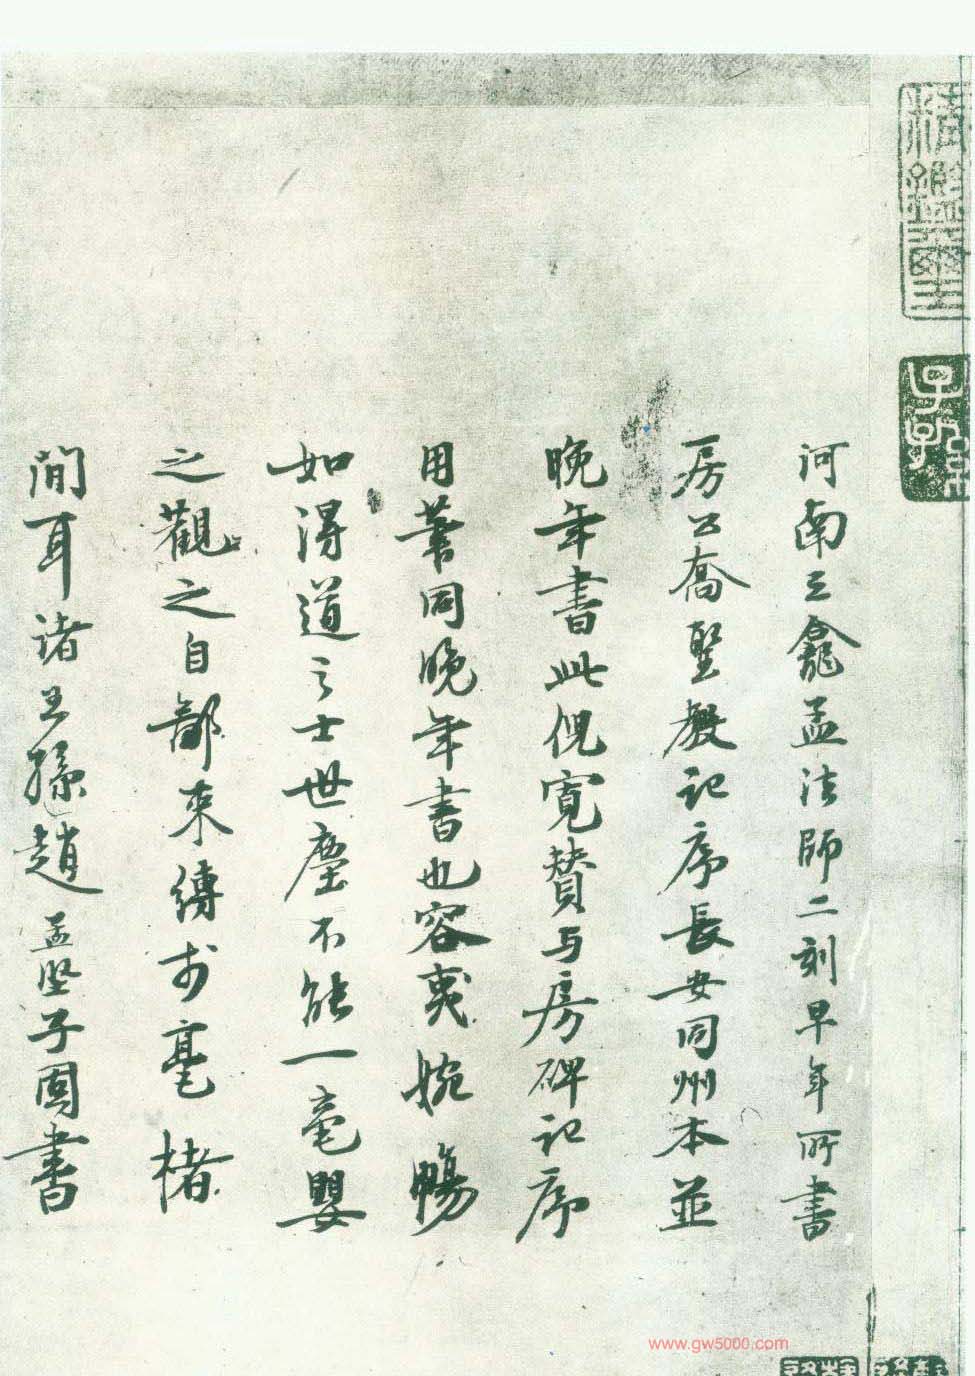 河南三龕孟法師二刻早年所書
房公喬聖教記序長安同州本並
晚年書此倪寬贊与房碑記序
用筆同晚年書也容夷婉暢
如得道之士世塵不能一毫嬰
之觀之自鄙來傳於毫楮
間耳諸王孫趙孟堅子固書
www.gw5000.com